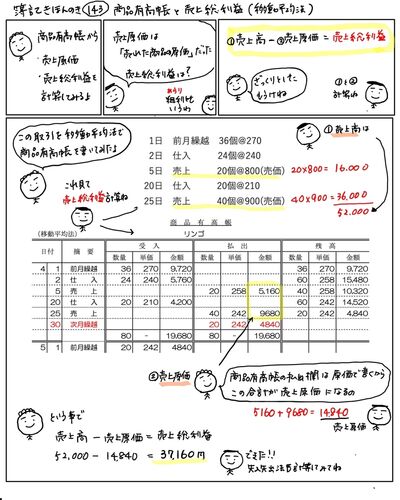 簿記てきほんのき 143 商品有高帳と売上総利益(移動平均法)
商品有高帳から
売上原価
売上総利益を
計算してみるよ
売上原価は
「売れた商品の原価」だった
売上総利益は?
あらり
粗利とも
いうわ
①売上高-②売上原価=売上総利益
ざっくりとした
もうけね
①と②
計算ね
この取引を移動平均法で
商品有高帳に書いてみたよ
これ見て
売上総利益計算ね
1日 前月繰越 36個@270
2日 仕入 24個@240
5日 売上 20個@800(売価)
20日 仕入 20個@210
25日 売上 40個@900(売価)
①売上高は
20×800=16.000
40×900=36,000
52.000
商品有高帳
(移動平均法) リンゴ
日付 摘要 受入 払出 残高
数量 単価 金額 数量 単価 金額 数量 単価 金額
4 1 前月繰越 36 270 9,720 36 270 9,720
2 仕入 24 240 5,760 60 258 15,480
5 売上 20 258 5,160 40 258 10,320
20 仕入 20 210 4,200 60 242 14,520
25 売上 40 242 9680 20 242 4,840
30 次月繰越 20 242 4840
80 - 19,680 80 - 19,680
5 1 前月繰越 20 242 4840 20 242 4840
②売上原価
商品有高帳の払出欄は原価で書くから
この合計が売上原価になるの
5160+9680=14,840
売上原価
という事で
売上高-売上原価=売上総利益
52,000-14840=37,160円
できた!!
先入先出法も計算してみてね